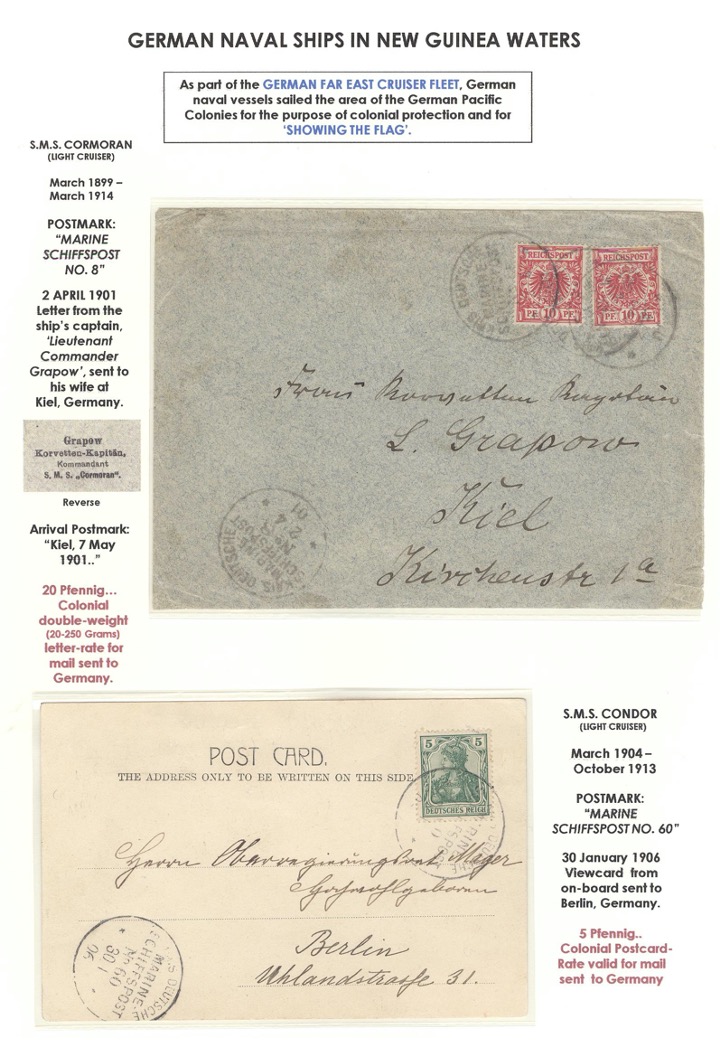 GERMAN NAVAL SHIPS IN NEW GUINEA WATERS
As part of the GERMAN FAR EAST CRUISER FLEET, German
naval vessels sailed the area of the German Pacific
Colonies for the purpose of colonial protection and for
‘SHOWING THE FLAG’.
S.M.S. CORMORAN
(LIGHT CRUISER)
March 1899 –
March 1914
POSTMARK:
“MARINE
SCHIFFSPOST
NO. 8”
2 APRIL 1901
Letter from the
ship’s captain,
‘Lieutenant
Commander
Grapow’, sent to
his wife at
Kiel, Germany.
Grapow
Korvetten-Kapitän,
Kommandant
S. M. S. „Cormoran“.
Reverse
Arrival Postmark:
“Kiel, 7 May
1901..”
20 Pfennig...
Colonial
double-weight
(20-250 Grams)
letter-rate for
mail sent to
Germany.
REICHSPOST
10 PF. 10
REICHSPOST
10 PF. 10
KAIS. DEUTSCHE
MARINE-
SCHIFFSPOST
Frau Korvetten Kapitän
L. Grapow
Kiel
Kirchenstr 1a
KAIS. DEUTSCHE
MARINE-
SCHIFFSPOST
No 8
2/4
01
POST CARD.
THE ADDRESS ONLY TO BE WRITTEN ON THIS SIDE
5 5
DEUTSCHES REICH
Herrn Oberregierungsrat
Hochwohlgeboren
Berlin
Uhlandstrasse 31.
DEUTSCHE
MARINE-
SCHIFFSPOST
No 60
30 1
06
S.M.S. CONDOR
(LIGHT CRUISER)
March 1904 –
October 1913
POSTMARK:
“MARINE
SCHIFFSPOST NO. 60”
30 January 1906
Viewcard from
on-board sent to
Berlin, Germany.
5 Pfennig..
Colonial Postcard-
Rate valid for mail
sent to Germany